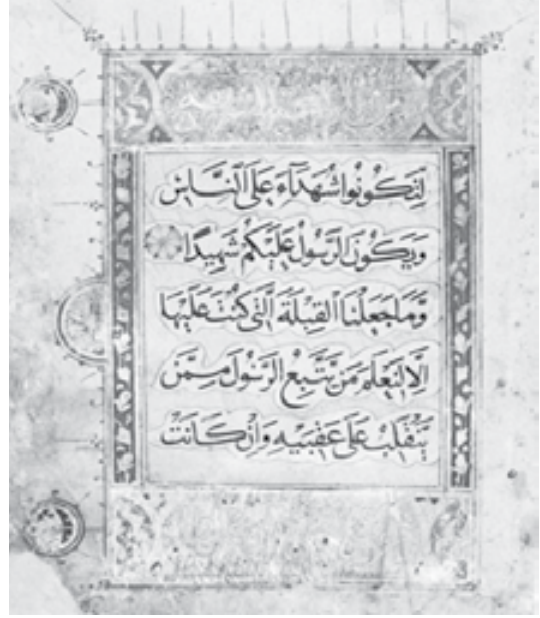 لِتَكُونُوا شُهَدَآءَ عَلَى ٱلنَّاسِ
وَيَكُونَ الرَّسُولُ عَلَيْكُمْ شَهِيدًا
وَّمَا جَعَلْنَا الْقِبْلَةَ الَّتِي كُنْتَ عَلَيْهَا
اِلَّا لِنَعْلَمَ مَنْ يَّتَّبِعُ الرَّسُولَ مِمَّنْ
يَّنْقَلِبُ عَلَى عَقِبَيْهِ وَاِنْ كَانَتْ